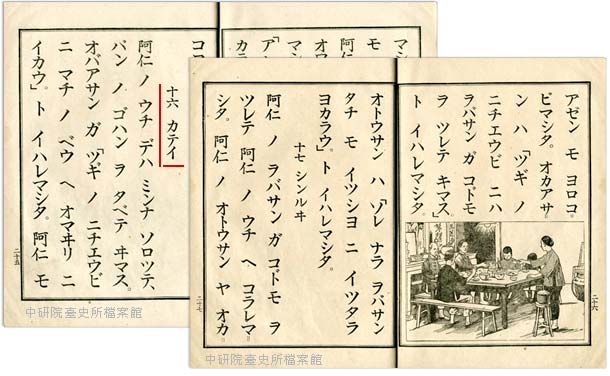 ココ
十六 カテイ
阿仁 ノ ウチ デハ ミンナ ソロツテ、
バン ノ ゴハン ヲ タベテ ヰマス。
オバアサン ガ 「ツギ ノ ニチエウビ
ニ マチ ノ ベウ ヘ オマヰリ ニ
イカウ。」 ト イハレマシタ。 阿仁 モ
二十五
中研院臺史所檔案館
アゼン モ ヨロコ
ビマシタ。 オカアサ
ン ハ 「ツギ ノ
ニチエウビ ニハ
ヲバサン ガ コドモ
ヲ ツレテ キマス。」
ト イハレマシタ
二十六
オトウサン ハ 「ソレ ナラ ヲバサン
タチ モ イツシヨ ニ イツタラ
ヨカラウ。」 ト イハレマシタ。
十七 シンルヰ
阿仁 ノ ヲバサン ガ コドモ ヲ
ツレテ 阿仁 ノ ウチ ヘ コラレマ
シタ。 阿仁 ノ オトウサン ヤ オカ
二十七
中研院臺史所檔案館